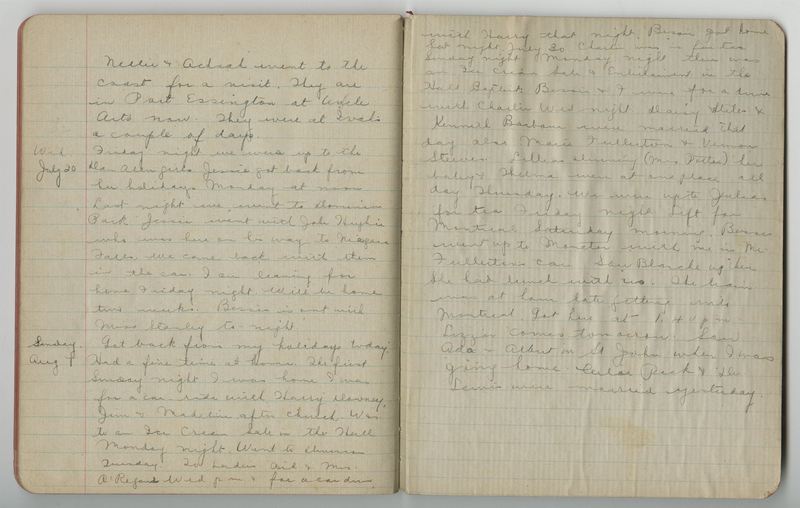 Nellie & Adinah went to the
coast for a visit. They are
in Port Essington at Uncle
Arts now. They were at Ivahs
a couple of days.
Wed. Friday night we were up to the
July 20 girls. Jessie got back from
her holidays Monday at noon
Last night we went to Dominion
Park. Jessie went with Jack Hughie
who was here on his way to Niagara
Falls. We came back with them
in the car. I am leaving for
home Friday night. Will be home
two weeks. Bessie is out with
Miss Stanley to-night.
Sunday Got back from my holidays today.
Aug 7 Had a fine time at home. The first
Sunday night I was home I was
for a car ride with Harry
Jim & Madeline after church. Was
to an Ice Cream Sale in the Hall
Monday night. Went to
Tuesday. To Ladies Aid & Mrs.
A. Wed p.m. & for a car drive
with Harry that night. Bessie got home
Sat night July 30 Charlie was in for tea
Sunday night. Monday night there was
an Ice Cream Sale & Entertainment in the
Hall Baptists. Bessie & I were for a drive
with Charlie Wed night. Daisy Stiles &
Kenneth Barbour were married that
day also Marie Fullerton & Vernon
Steeves. Lillian (Mrs ) her
baby & Thelma were at our place all
day Thursday. We were up to Julias
for tea Friday night. Left for
Montreal Saturday morning. Bessie
went up to Moncton with me in Mr
Fullertons car. Saw Blanche up there
She had lunch with us. The train
was at hour late getting into
Montreal. Got here at 1.40 p.m.
Lizzie comes tomorrow. Saw
Ada & Albert in St John when I was
going home. &
Lewis were married yesterday.